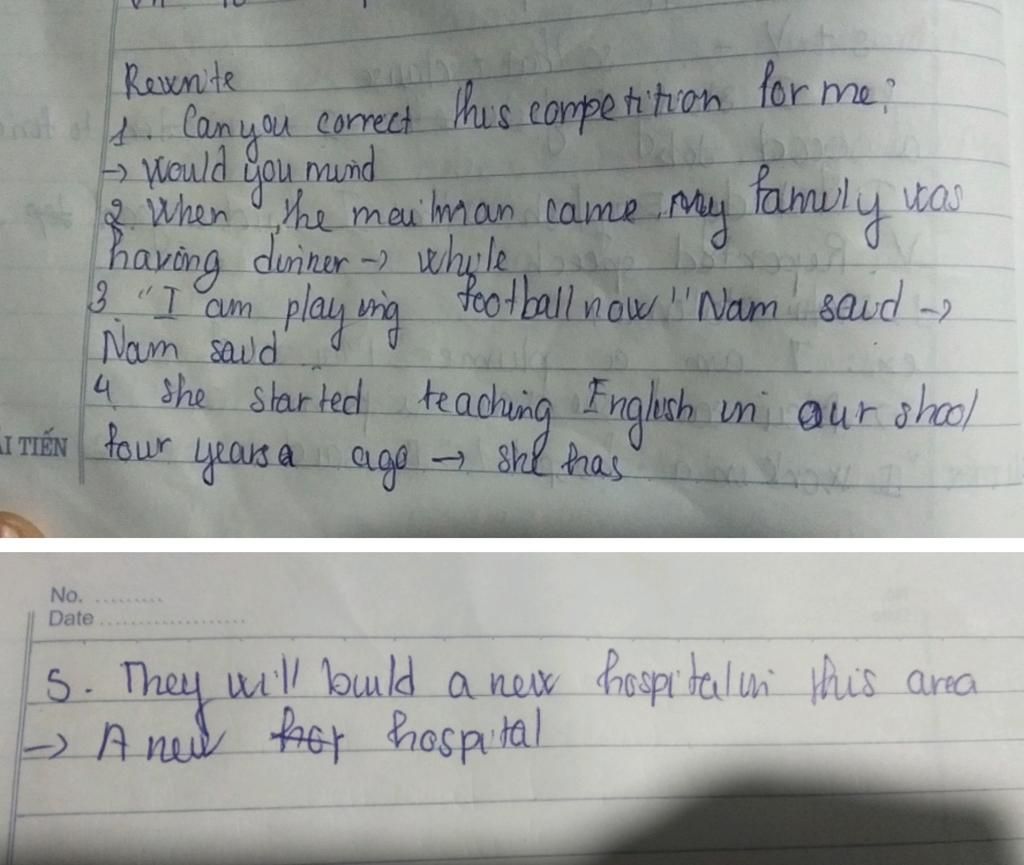 Rewrite
1. Can you correct this competition for me?
→ Would you mind
2. When the mailman came my family was
having dinner → while
3. "I am playing football now" Nam said →
Nam said
4 she started teaching English in our shool
I TIẾN
four years a ago → she has
No. .........
Date ...................
5. They will build a new hospital in this area
→ A new hospital